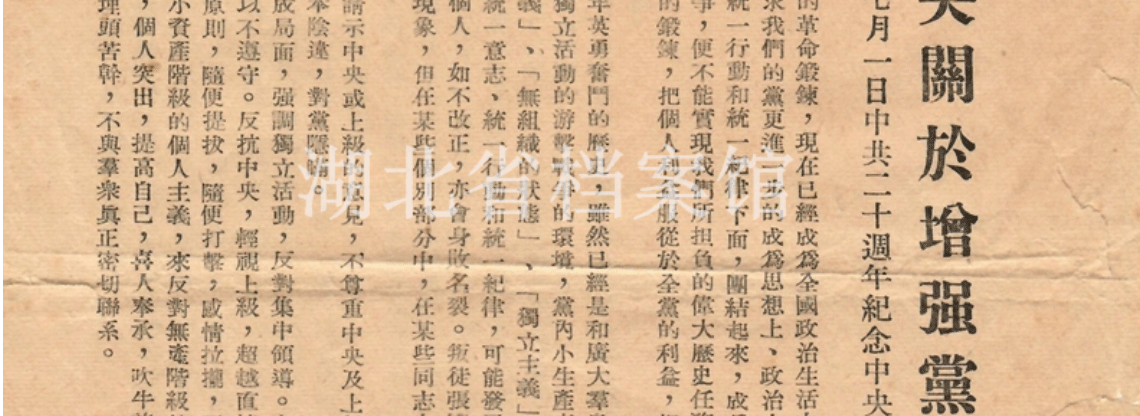 央關於增强黨
七月一日中共二十週年紀念中央
的革命鍛鍊，現在已經成爲全國政治生活
求我們的黨更進一步的成爲思想上、政治
統一行動和統一紀律下面，團結起來，成
事，便不能實現我們所担負的偉大歷史任
的鍛鍊，把個人利益服從於全黨的利益，
年英勇奮鬥的歷史，雖然已經是和廣大羣
獨立活動的游擊戰爭的環境，黨內小生產
義」、「無組織的狀態」、「獨立主義」
統一意志、統一行動和統一紀律，可能發
個人，如不改正，亦會身敗名裂。叛徒張
現象，但在某些個別部分中，在某些同志
請示中央或上級的意見，不尊重中央及上
奉陰違，對黨隱瞞。
成局面，强調獨立活動，反對集中領導。
以不遵守。反抗中央，輕視上級，超越直
原則，隨便提拔，隨便打擊，感情拉攏，
小資產階級的個人主義，來反對無產階級
，個人突出，提高自己，喜人奉承，吹牛
埋頭苦幹，不與羣衆眞正密切聯系。
湖北省档案馆